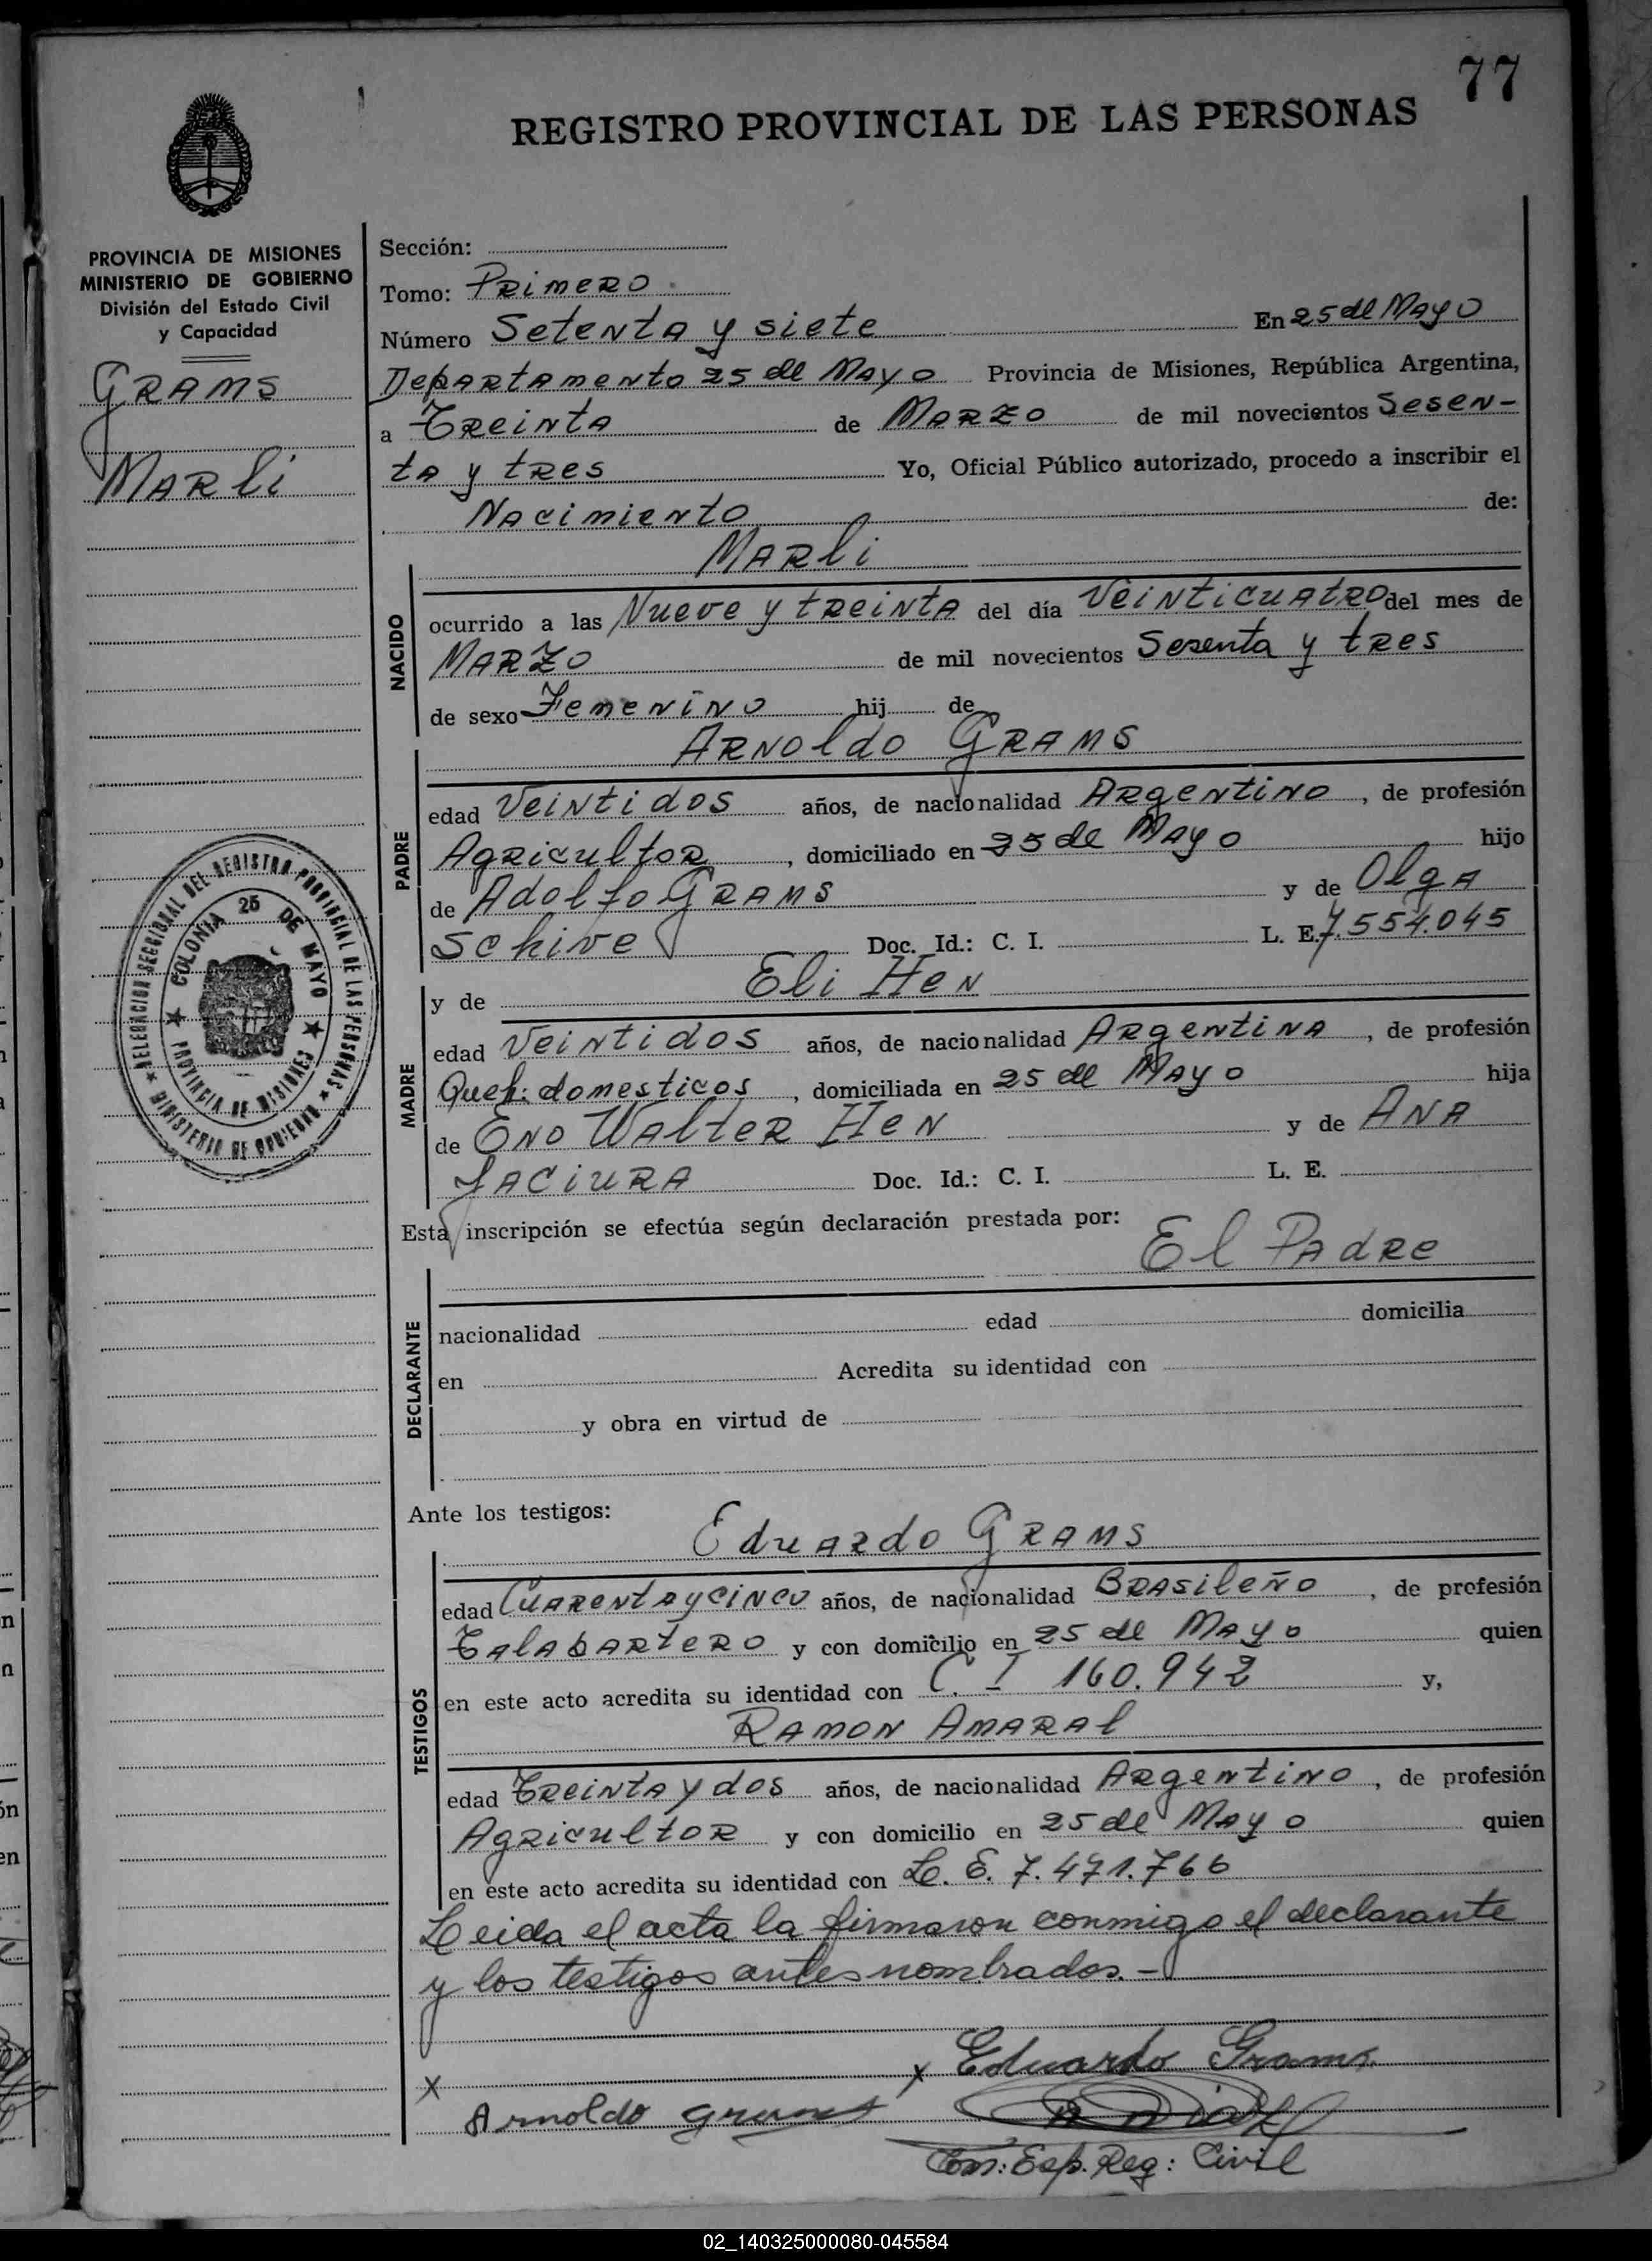 77
REGISTRO PROVINCIAL DE LAS PERSONAS
PROVINCIA DE MISIONES
MINISTERIO DE GOBIERNO
División del Estado Civil
y Capacidad
GRAMS
MARli
Sección:
Tomo: PRimeRO
Número Setenta y siete En 25 de Mayo
Departamento 25 de Mayo Provincia de Misiones, República Argentina,
a Treinta de Marzo de mil novecientos Sesen-
ta y tres Yo, Oficial Público autorizado, procedo a inscribir el
Nacimiento de:
NACIDO
MARli
ocurrido a las Nueve y treinta del día Veinticuatro del mes de
Marzo de mil novecientos Sesenta y tres
de sexo Femenino hij de
PADRE
Arnoldo Grams
edad Veintidos años, de nacionalidad Argentino, de profesión
Agricultor, domiciliado en 25 de Mayo hijo
de Adolfo Grams y de Olga
Schive Doc. Id.: C. I. L. E. 7.554.045
MADRE
y de Eli Hen
edad Veintidos años, de nacionalidad Argentina, de profesión
Queh: domesticos, domiciliada en 25 de Mayo hija
de Eno Walter Hen y de Ana
Jaciura Doc. Id.: C. I. L. E.
Esta inscripción se efectúa según declaración prestada por:
El Padre
DECLARANTE
nacionalidad edad domicilia
en Acredita su identidad con
y obra en virtud de
Ante los testigos:
TESTIGOS
Eduardo Grams
edad Cuarenta y cinco años, de nacionalidad Brasileño, de profesión
Talabartero y con domicilio en 25 de Mayo quien
en este acto acredita su identidad con C. I 160.942 y,
Ramon Amaral
edad Treinta y dos años, de nacionalidad Argentino, de profesión
Agricultor y con domicilio en 25 de Mayo quien
en este acto acredita su identidad con L. E. 7.471.766
Leida el acta la firmaron conmigo el declarante
y los testigos antes nombrados.-
x x Eduardo Grams
Arnoldo Grams
Reg: Civil
DELEGACION SECCIONAL DEL REGISTRO PROVINCIAL DE LAS PERSONAS
MINISTERIO DE GOBIERNO
COLONIA 25 DE MAYO
PROVINCIA DE MISIONES
02_140325000080-045584